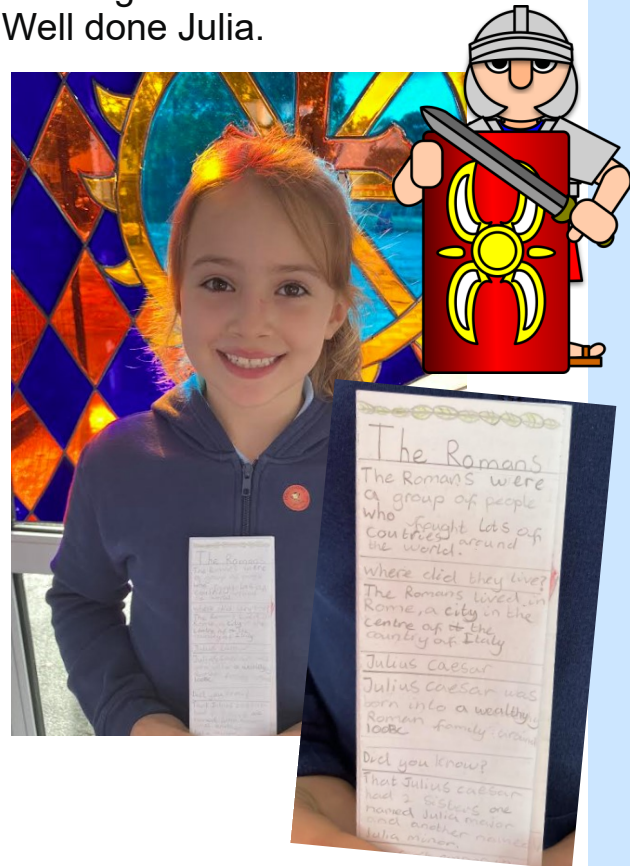 Well done Julia.
The Romans
The Romans were
a group of people
who fought lots of
coutries around
the world.
where did they live?
The Romans lived in
Rome, a city in the
centre of the
country of Italy
Julius caesar
Julius caesar was
born into a wealthy
Roman family around
100BC
Did you know?
That Julius caesar
had 2 sisters one
named Julia major
and another named
Julia minor.